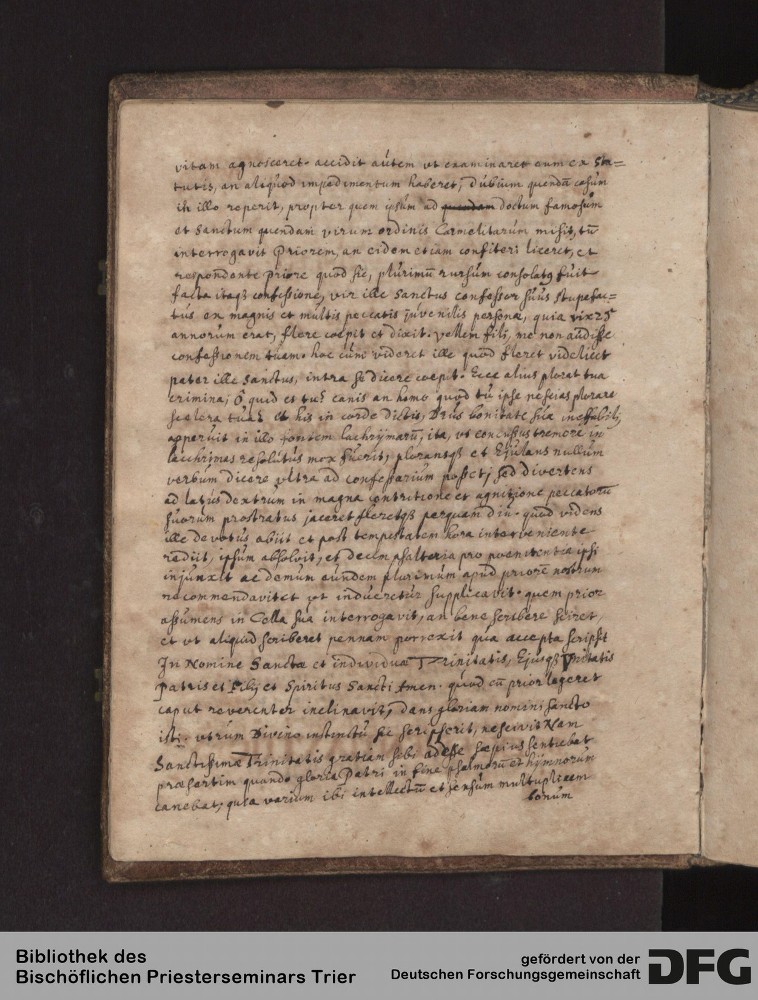 vitam agnosceret. accidit autem vt examinaret eum ex Sta=
tutis, an aliquod impedimentum haberet, dubium quendā casum
in illo reperit, propter quem ipsum ad quendam doctum famosum
et Sanctum quendam virum ordinis Carmelitarum misit, tū
interrogavit Priorem, an eidem etiam confiteri liceret, et
respondente priore quod sic, plurimū rursum consolatq fuit
facta itaq3 confessione, vir ille Sanctus confessor suus stupefac=
tus ex magnis et multis peccatis juvenilis personæ, quia vix 25
annorum erat, flere coepit et dixit. vellem fili, me non audisse
confessionem tuam. hoc cum videret ille quod fleret videlicet
pater ille Sanctus, intra se dicere coepit. Ecce alius plorat tua
crimina, ô quid et tu? canis an homo quod tu ipse nescias plorare
scelera tua? et his in corde dictis, Deus bonitate sua ineffabili,
apperuit in illo fontem lachrÿmarū, ita, vt concussus tremore in
lachrimas resolutus mox fuerit, ploransq3 et Ejulans nullum
verbum dicere vltra ad confessarium posset, sed divertens
ad latus dextrum in magna contritione et agnitione peccatorū
suorum prostratus jaceret fleretq3 perquam diu. quod videns
ille devotus abiit et post tempestatem hora interveniente
rediit, ipsum absolvit, et decem psalteria pro poenitentia ipsi
injunxit ac demum eundem plurimum apud priorē nostrum
recommendavit et vt indueretur supplicavit. quem prior
assumens in Cella sua interrogavit, an bene scribere sciret,
et vt aliquid scriberet pennam porrexit qua accepta scripsit
In Nomine Sanctæ et individuæ Trinitatis, Ejusq3 Vnitatis
Patris et Filij et Spiritus Sancti Amen. quod cū prior legeret
caput reverenter inclinavit, dans gloriam nomini sancto
isti. vtrum Divino instinctu sic scripserit, nescivit Nam
Sanctissimæ Trinitatis gratiam sibi adesse sæpius sentiebat
præsertim quando gloria Patri in fine psalmorū et hÿmnorum
canebat, quia varium ibi intellectū et sensum multuplicem
bonum
Bibliothek des
Bischöflichen Priesterseminars Trier
gefördert von der
Deutschen Forschungsgemeinschaft
DFG